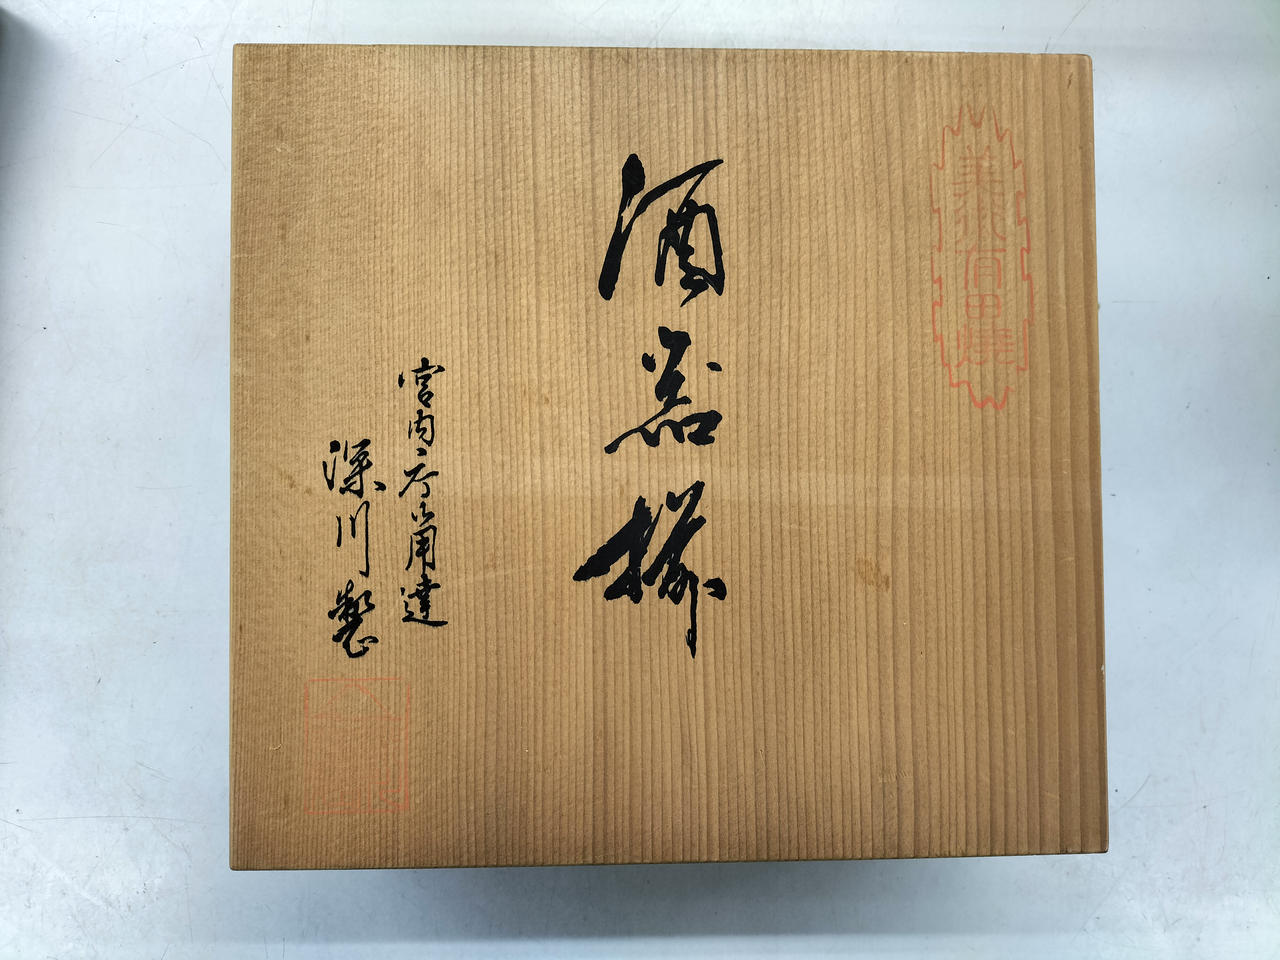 美術有田燒
酒器揃
宮内庁御用達
深川製